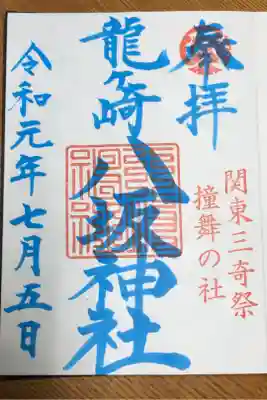 奉拝
関東三奇祭
撞舞の社
龍ヶ崎
八坂神社
令和元年七月五日